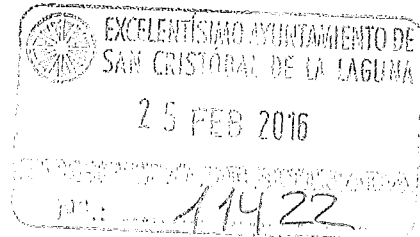 EXCELENTÍSIMO AYUNTAMIENTO DE
SAN CRISTOBAL DE LA LAGUNA
25 FEB 2016
11422